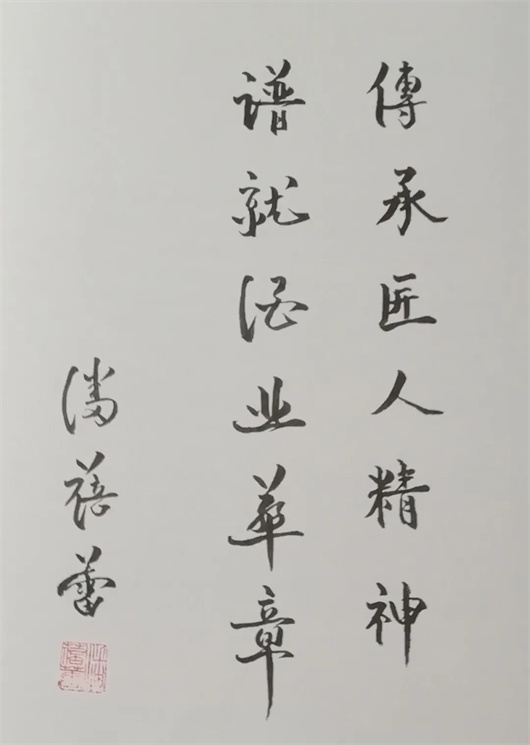 傳承匠人精神
谱就酒业華章
潘蓓蕾